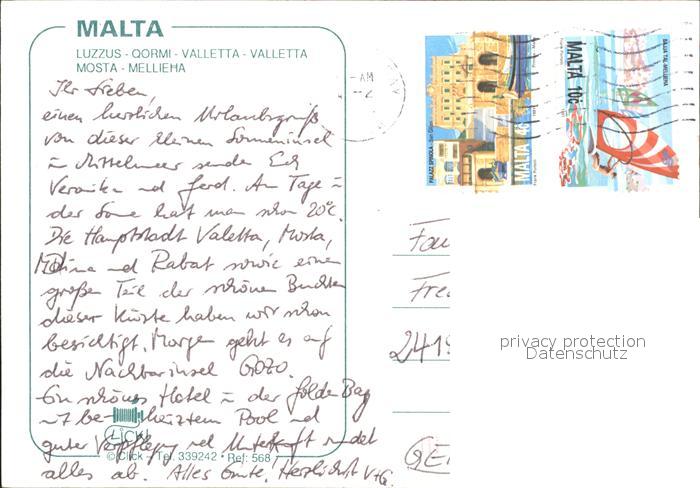 MALTA
LUZZUS - QORMI - VALLETTA - VALLETTA
MOSTA - MELLIEHA
Ihr Lieben,
einen herzlichen Urlaubsgruß
von dieser kleinen Sonneninsel
im Mittelmeer senden Euch
Veronika und Gerd. Am Tage in
der Sonne hat man schon 20°C.
Die Hauptstadt Valetta, Mosta,
Mdina und Rabat sowie einen
großen Teil der schönen Buchten
dieser Küste haben wir schon
besichtigt. Morgen geht es auf
die Nachbarinsel GOZO.
Ein schönes Hotel in der Golden Bay
mit beheiztem Pool und
guter Verpflegung und Unterkunft rundet
alles ab. Alles Gute, Herzlichst V+G.
CLICK
© Click - Tel. 339242 - Ref: 568
AM
PALAZZ SPINOLA - San Ġiljan
MALTA 4c
MALTA 10c
BAJJA TAL-MELLIEĦA
Fre
2419
GE
privacy protection
Datenschutz